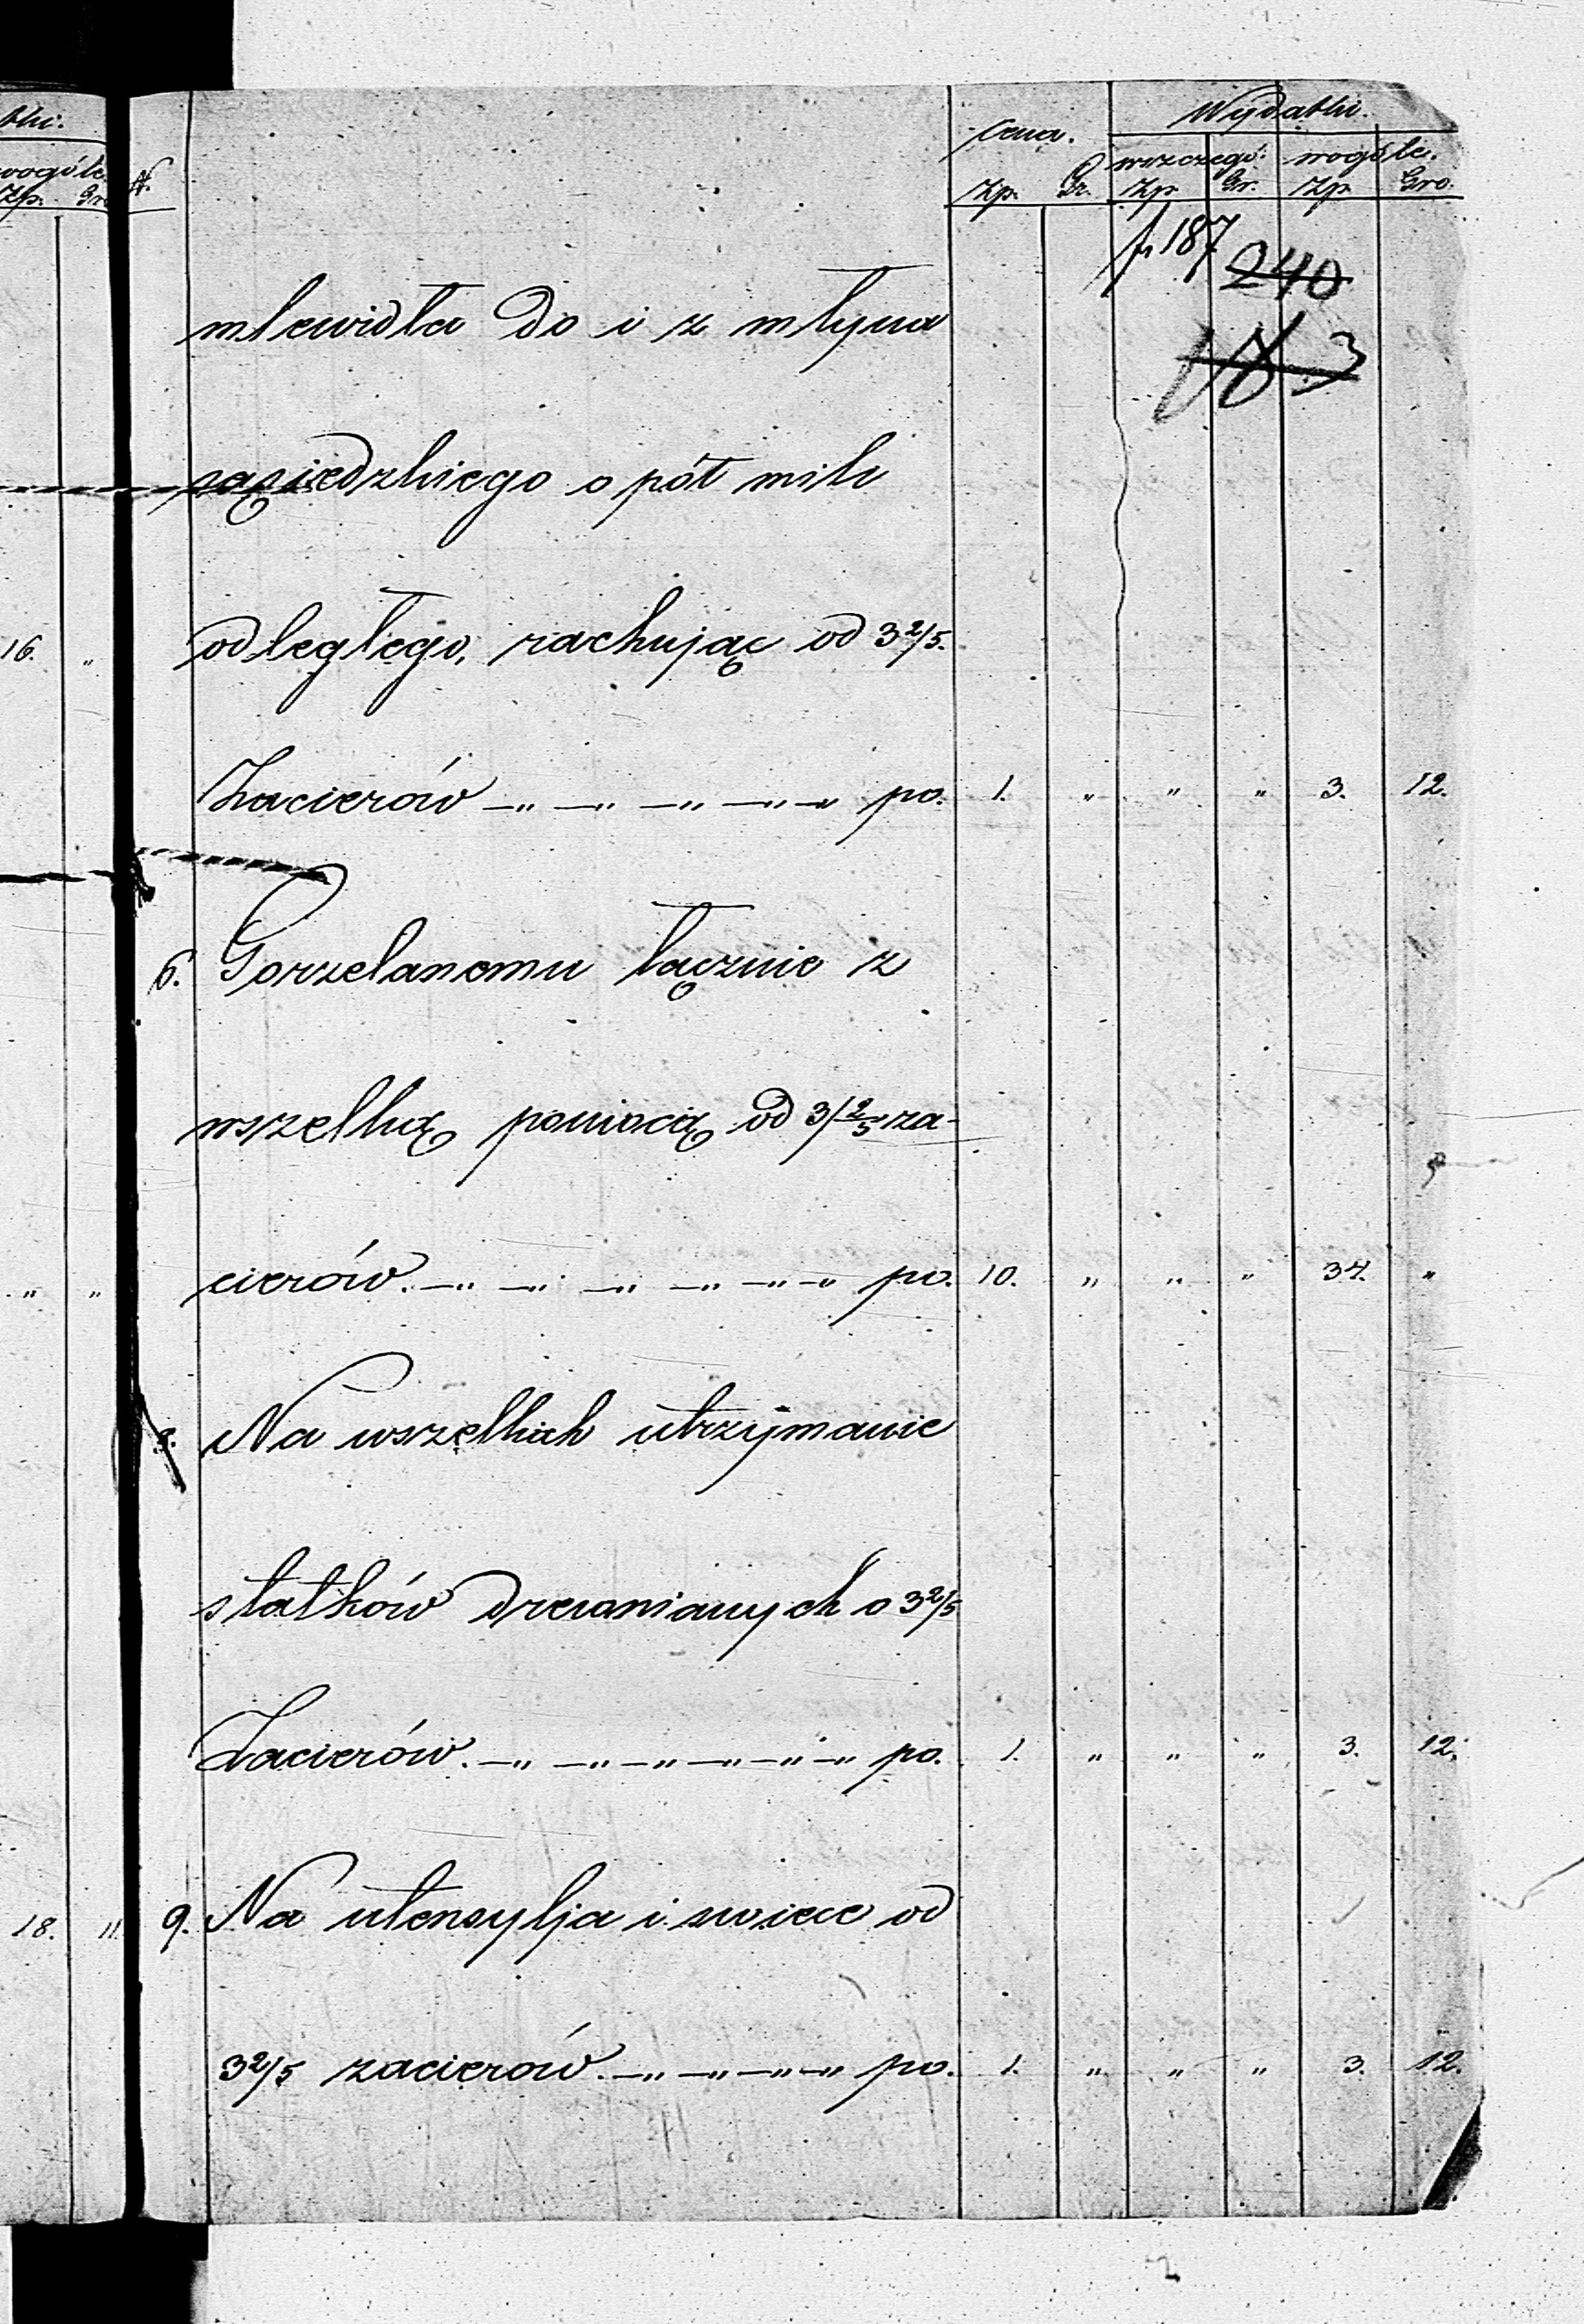 tki.
wogóle.
Zp. Gro
16. "
" "
18. 11.
N.
Cena. Wydatki.
wszczegó: wogóle.
Zp. Gr. Zp. Gr. Zp. Gro.
187 240
183
mlewidła do i z młyna
sąsiedzkiego o pół mili
odległego, rachując od 3 2/5.
Zacierów —"—"—"—"—" po. 1. " " " 3. 12.
6. Gorzelanemu łącznie z
wszelką pomocą od 3/2/5 za-
cierów. —"—"—"—"—"—" po. 10. " " " 34. "
Na wszelkich utrzymanie
statków drewnianych o 3 2/5
Zacierów. —"—"—"—"—"—" po. 1. " " " 3. 12.
9. Na utensylja i swiece od
3 2/5 zacierów. —"—"—"—" po. 1. " " " 3. 12.